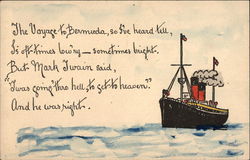 The Voyage to Bermuda, so I've heard tell,
Is oft-times low'ry — sometimes bright.
But Mark Twain said,
"'Twas going thro' hell, to get to heaven."
And he was right.